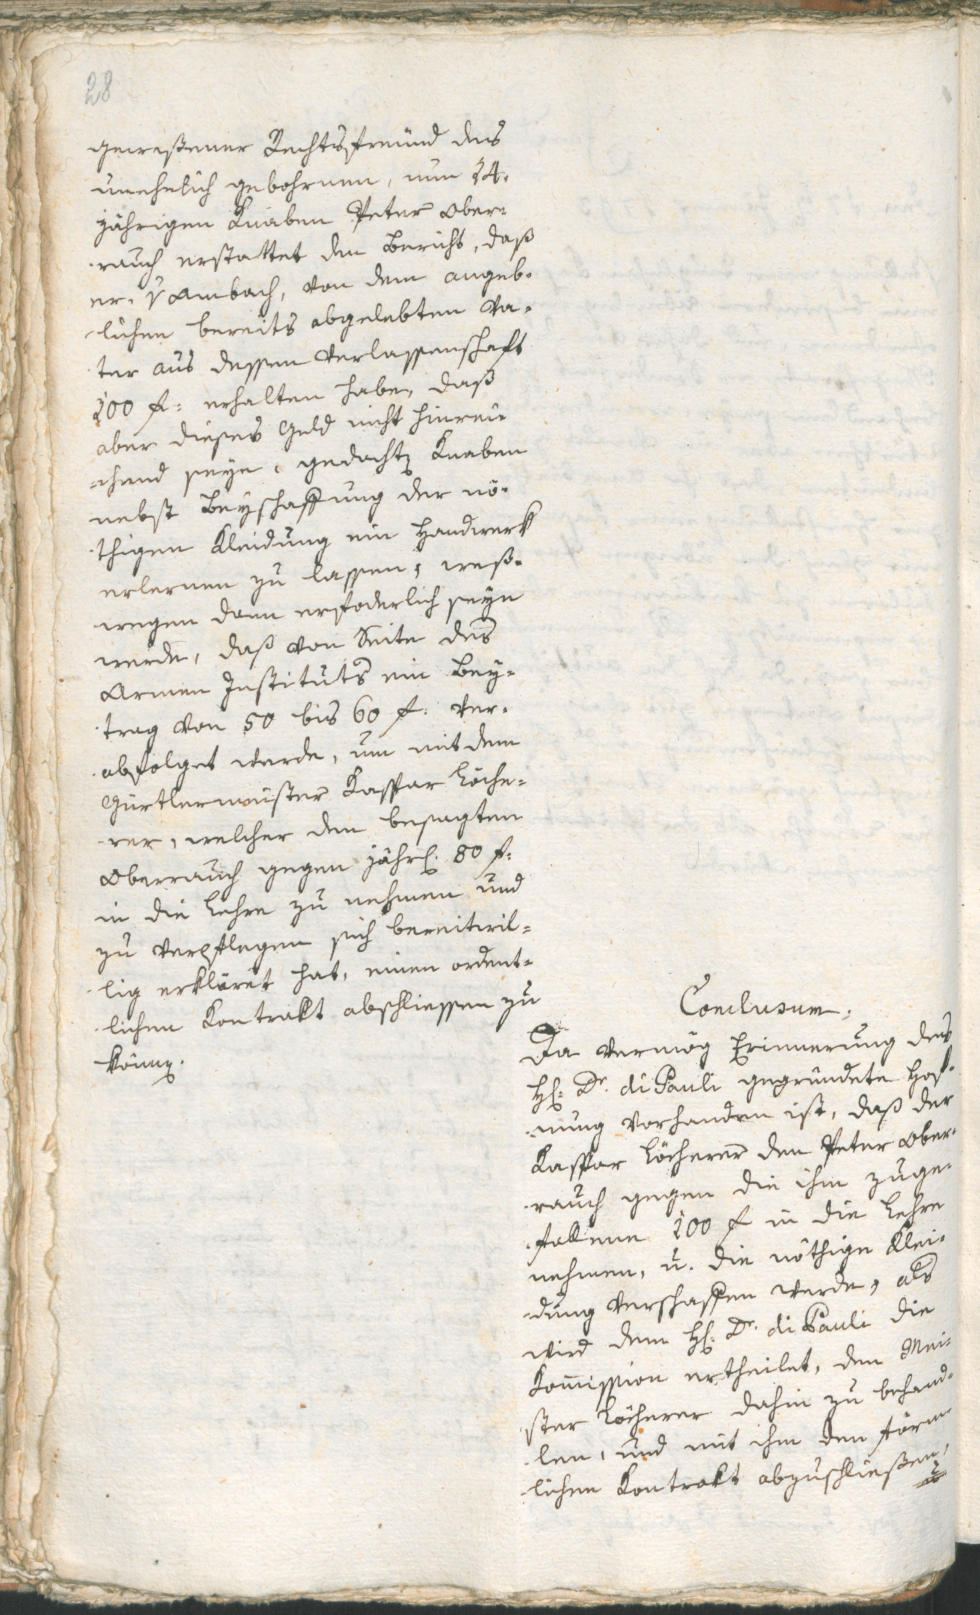 28
gewesener Rechtsfreünd des
unehelich gebohrnen, nun 14.
jährigen Knaben Peter Ober-
rauch erstattet den Bericht, daß
er v Ambach, von dem angeb-
lichen bereits abgelebten Va-
ter aus dessen Verlassenschaft
100 f: erhalten habe, daß
aber dieses Geld nicht hinrei-
chend seye, gedacht Knaben
nebst Beyschaffung der nö-
thigen Kleidung ein Handwerk
erlernen zu lassen, weß-
wegen dann erfoderlich seyn
werde, daß von Seite des
Armen Instituts ein Bey-
trag von 50 bis 60 f. ver-
abfolget werde, um mit dem
Gürtlermeister Kaspar Löche-
rer, welcher den besagten
Oberrauch gegen jährl. 80 f:
in die Lehre zu nehmen und
zu verpflegen sich bereitwil-
lig erkläret hat, einen ordent-
lichen Kontrakt abschliessen zu
könn.
Conclusum.
Da vermög Erinnerung des
H: Dr. di Pauli gegründete Hof-
nung vorhanden ist, daß der
Kaspar Löcherer den Peter Ober-
rauch gegen die ihm zuge-
fallene 100 f in die Lehre
nehmen, u. die nöthige Klei-
dung verschaffen werde, als
wird dem H: Dr. di Pauli die
Kommission ertheilet, den Mei-
ster Löcherer dahin zu behand-
len, und mit ihm den förm-
lichen Kontrakt abzuschließen,